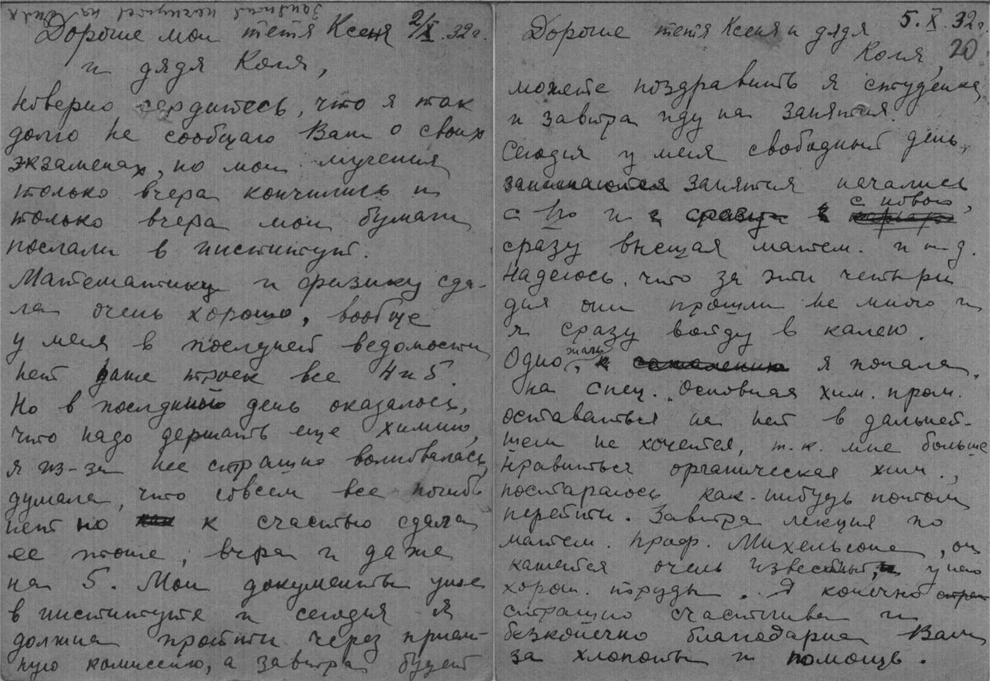 Дорогие мои тетя Ксеня 2/X.32г.
и дядя Коля,
Наверно сердитесь, что я так
долго не сообщаю Вам о своих
экзаменах, но мои мучения
только вчера кончились и
только вчера мои бумаги
послали в институт.
Математику и физику сда-
ла очень хорошо, вообще
у меня в последней ведомости
нет даже троек все 4 и 5.
Но в последний день оказалось,
что надо держать еще химию,
я из-за нее страшно волновалась,
думала, что совсем все погиб
нет но к счастью сдала
ее тоже, вчера и даже
на 5. Мои документы уже
в институте и сегодня я
должна пройти через прием-
ную комиссию, а завтра будет
занятия на
Дорогие тетя Ксеня и дядя 5.X.32г.
Коля, 20
можете поздравить я студентка,
и завтра иду на занятия.
Сегодня у меня свободный день,
занимаются занятия начались
с 1го и с сразу с нового,
сразу высшая матем. и т.д.
Надеюсь, что за эти четыре
дня они прошли не много и
я сразу войду в колею.
Одно жаль, к сожалению я попала
на спец. Основная хим. пром.
оставаться на ней в дальней-
шем не хочется, т.к. мне больше
нравиться органическая хим.,
постараюсь как-нибудь потом
перейти. Завтра лекция по
матем. проф. Михельсона, он
кажется очень известный, и у него
хорош. труды. Я конечно страш
страшно счастлива и
безконечно благодарна Вам
за хлопоты и помощь.